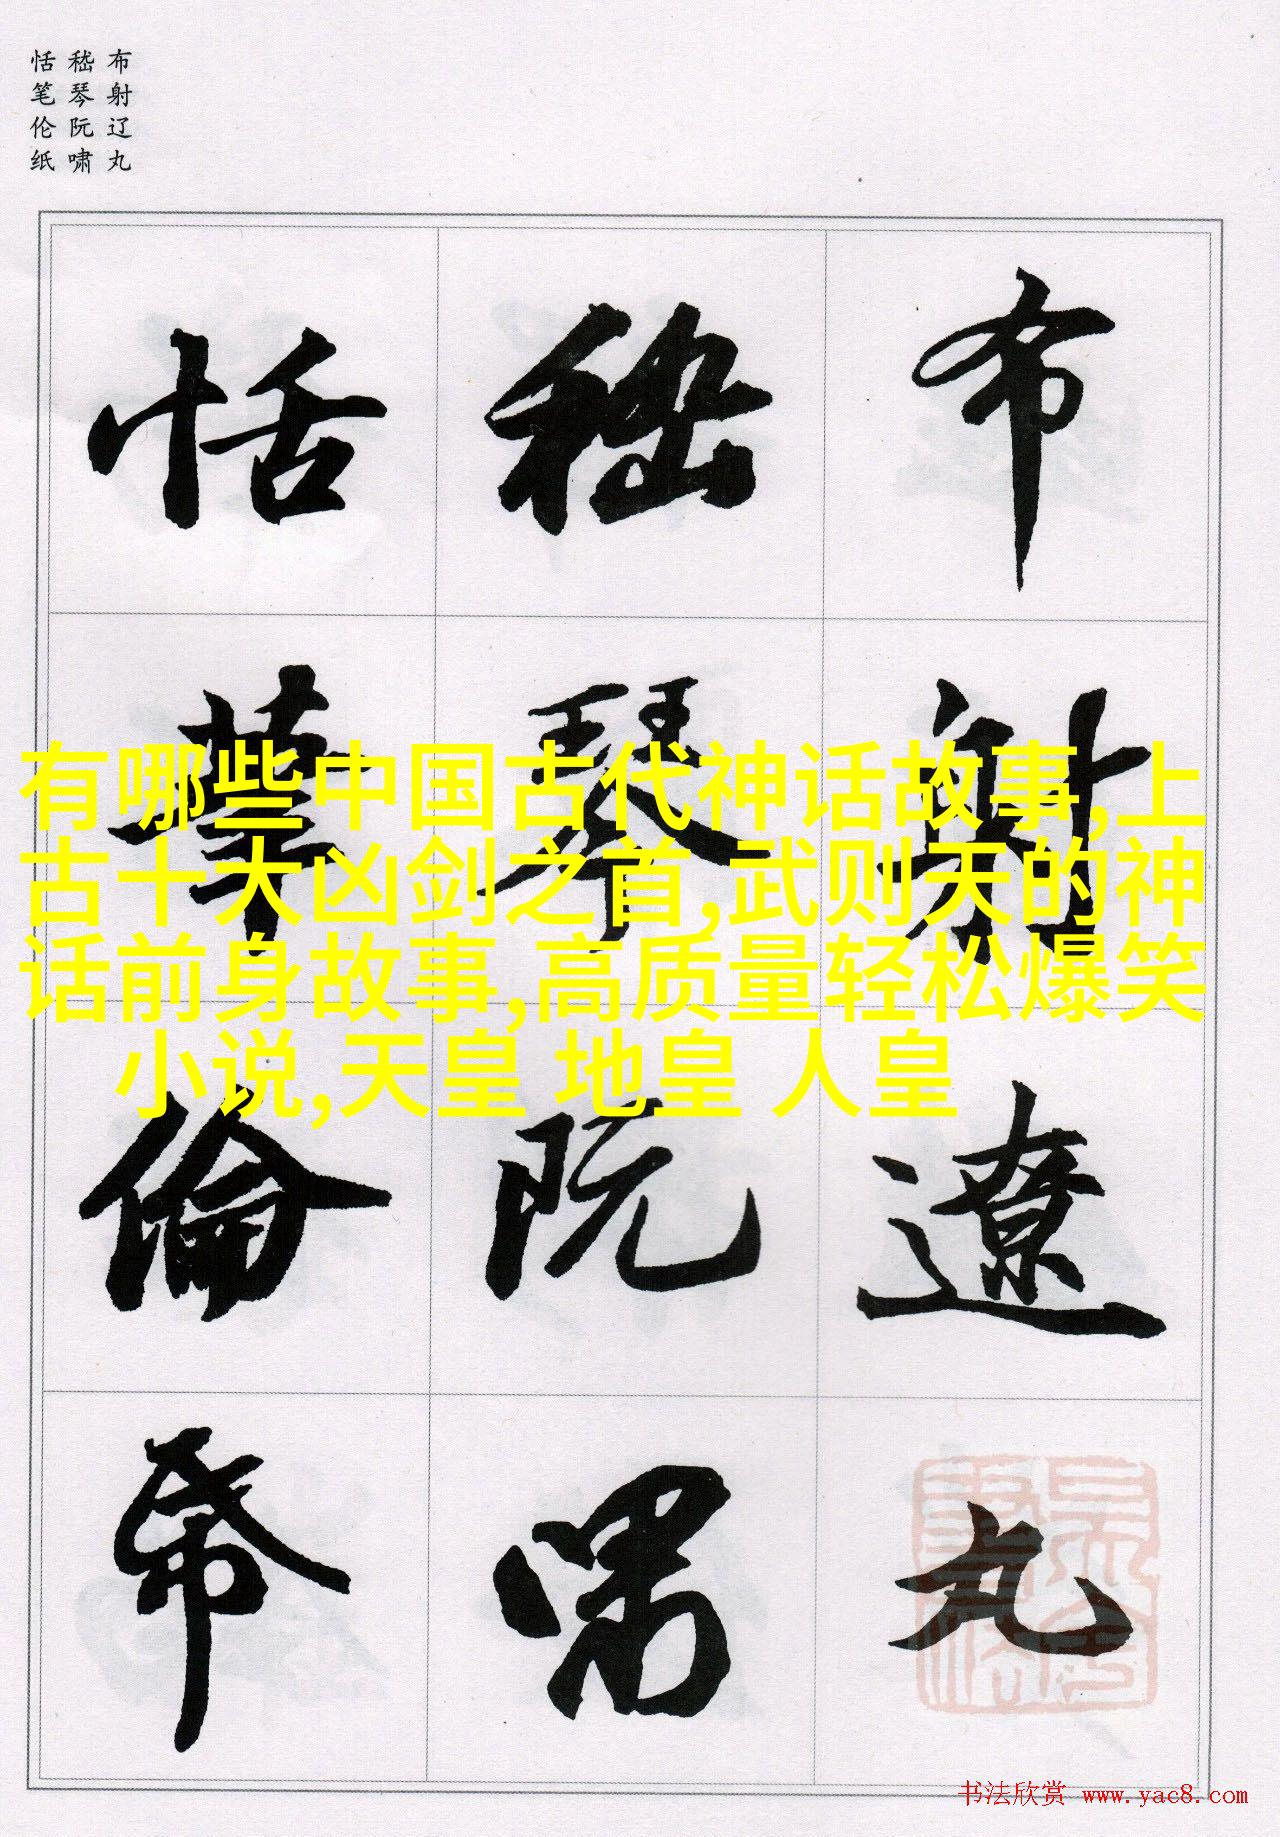 布射辽丸
嵇琴阮啸
恬笔伦纸
布射遼丸
嵇琴阮嘯
恬筆倫帋
有哪些中国古代神话故事,上
古十大凶剑之首,武则天的神
话前身故事,高质量轻松爆笑
小说,天皇 地皇 人皇
书法欣赏 www.yac8.com